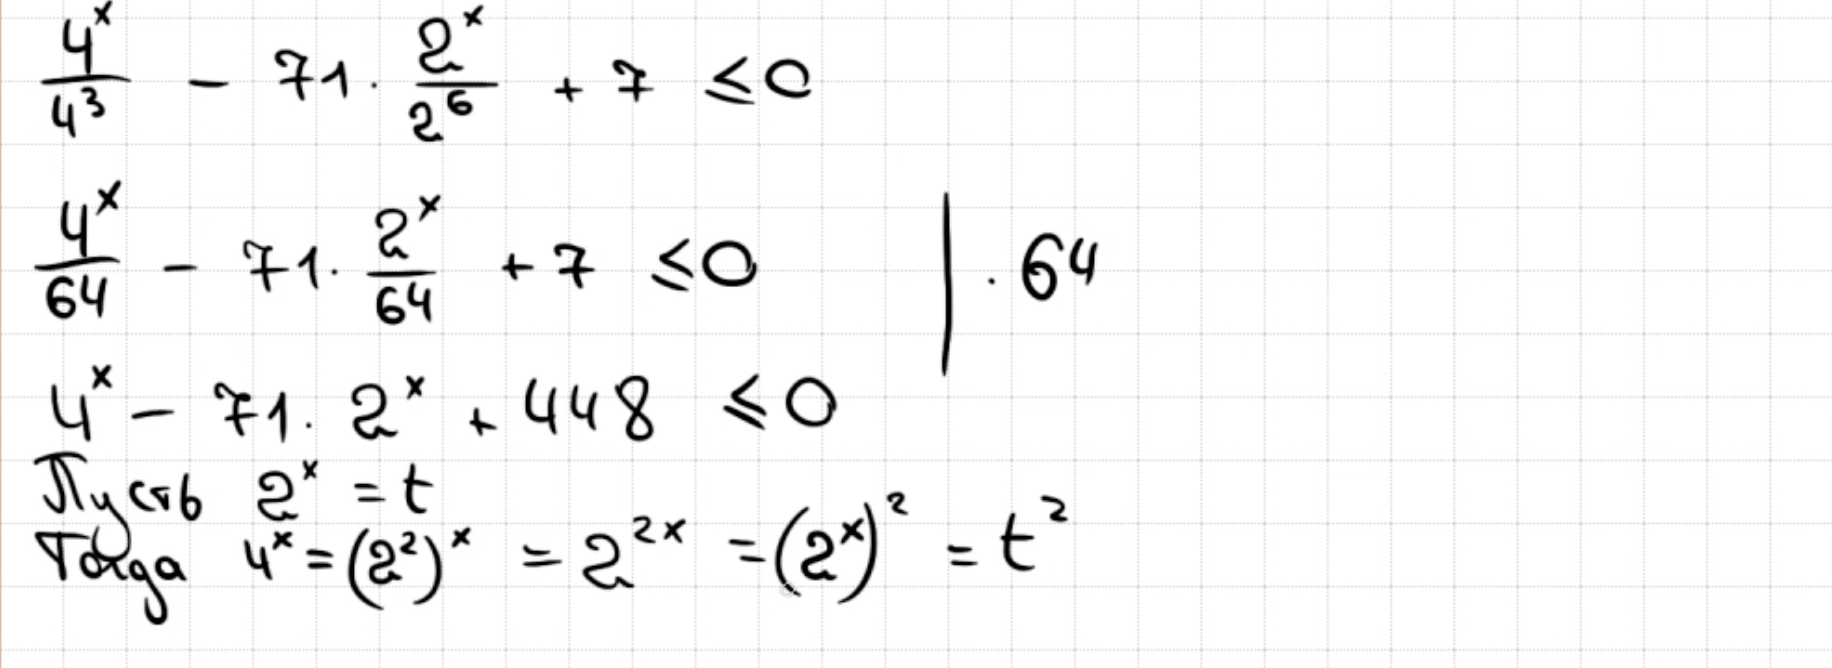 4^x/4^3 - 71 · 2^x/2^6 + 7 ≤ 0
4^x/64 - 71 · 2^x/64 + 7 ≤ 0 | · 64
4^x - 71 · 2^x + 448 ≤ 0
Пусть 2^x = t
Тогда 4^x = (2^2)^x = 2^{2x} = (2^x)^2 = t^2